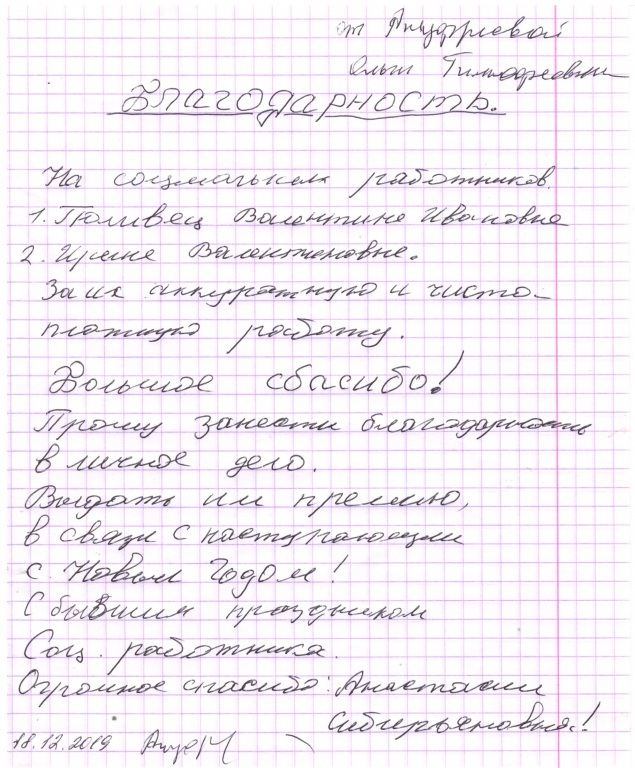 от Ануфриевой
Ольги Тимофеевны
Благодарность.
На социальных работников.
1. Поливец Валентине Ивановне
2. Ирине Валентиновне.
За их аккуратную и чисто-
плотную работу.
Большое сбасибо!
Прошу занести благодарность
в личное дело.
Выдать им премию,
в связи с наступающим
с Новым Годом!
С бывшим праздником
Соц. работника.
Огромное спасибо: Анастасии
18.12.2019